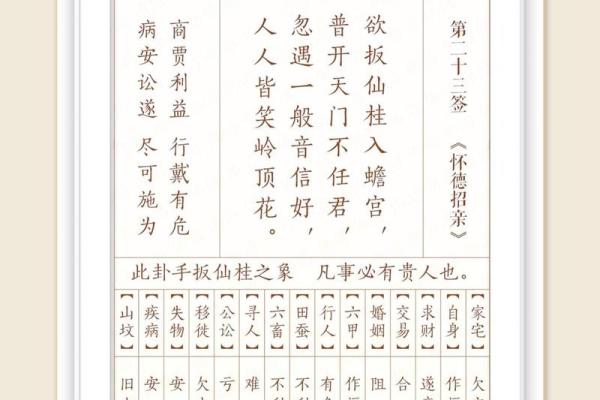 第二十三签 《怀德招亲》
欲扳仙桂入蟾宫，
普开天门不任君，
忽遇一般音信好，
人人皆笑岭顶花。
商贾利益 行戴有危
病安讼遂 尽可施为
此卦手扳仙桂之象 凡事必有贵人也。
【家宅】
欠
【自身】
作
【求财】
遂
【交易】
合
【婚姻】
阻
【六甲】
作
【行人】
有
【田蚕】
不
【六畜】
不
【寻人】
难
【公讼】
亏
【移徙】
欠
【失物】
安
【疾病】
安
【山坟】
旧